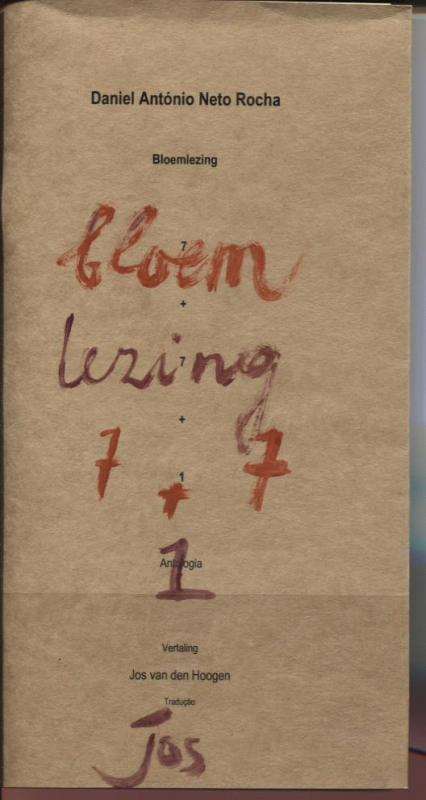 Daniel António Neto Rocha
Bloemlezing
7
bloem
+
lezing
7
+
7 + 7
1
Antologia
1
Vertaling
Jos van den Hoogen
Tradução
Jos